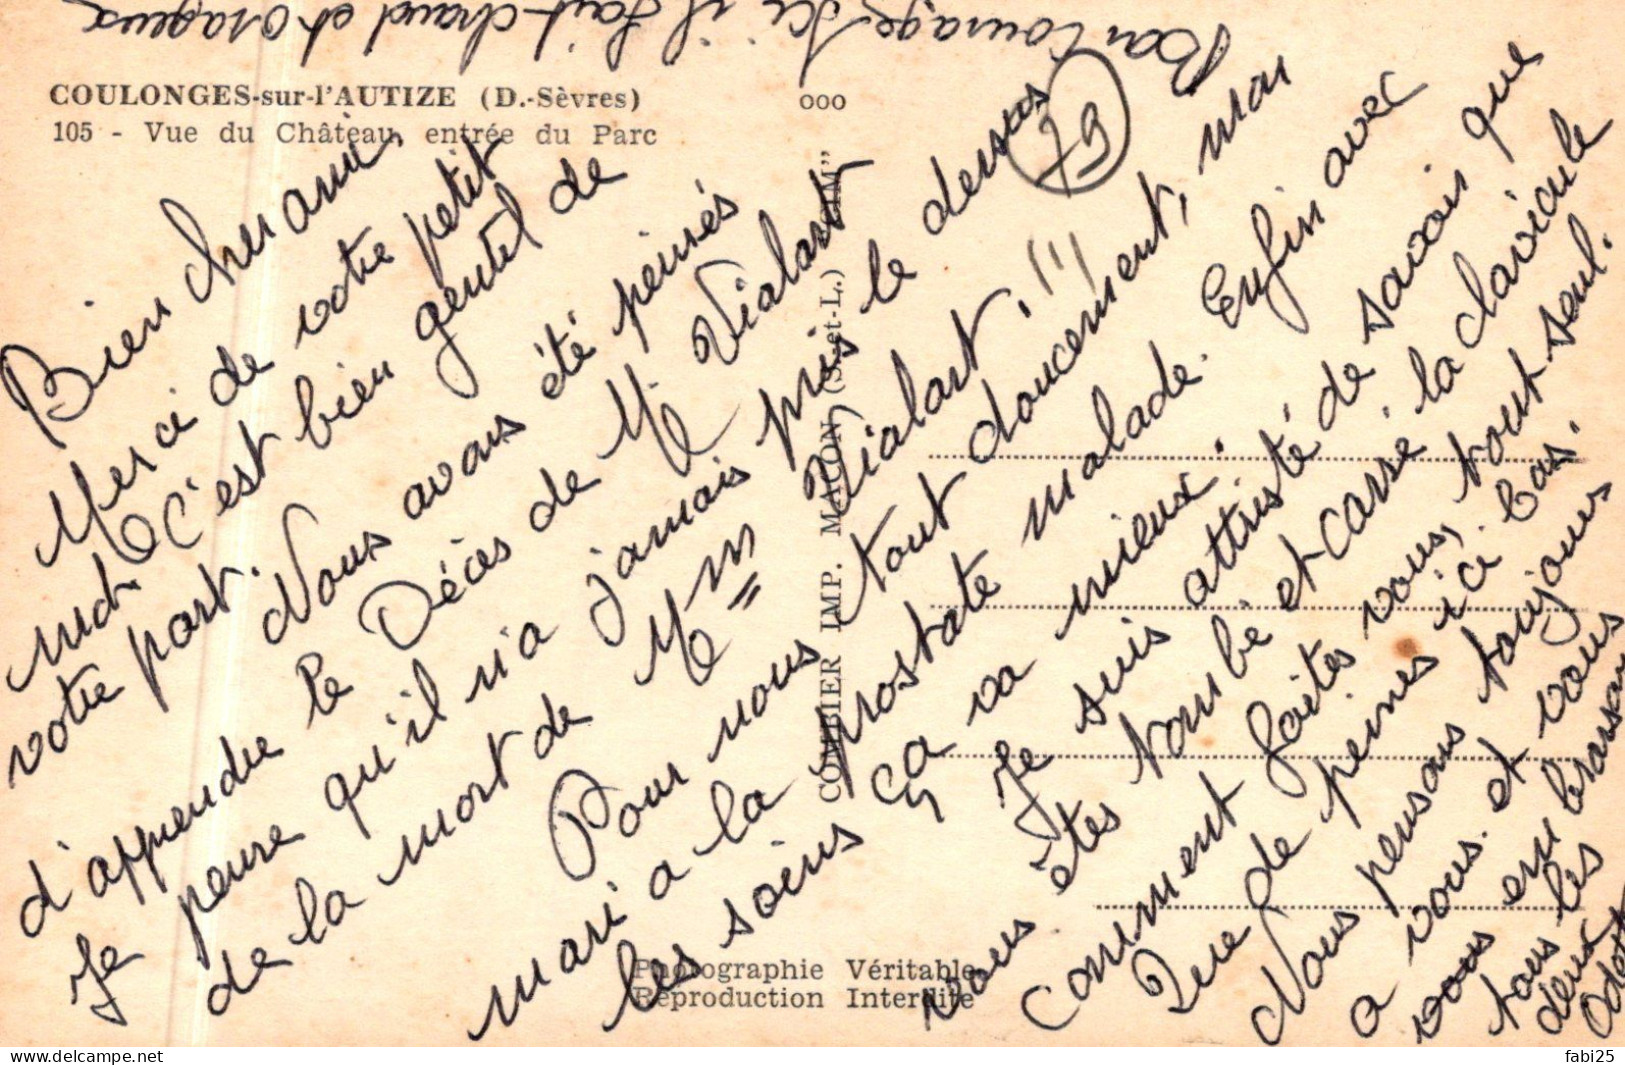 Bon courage. Ici il fait chaud et orageux
COULONGES-sur-l'AUTIZE (D.-Sèvres)
105 - Vue du Château, entrée du Parc
ooo
79
COMBIER IMP. MACON (S.-et-L.) "CIM"
Photographie Véritable
Reproduction Interdite
Bien cher ami,
Merci de votre petit
mot. C'est bien gentil de
votre part.
Nous avons été peinés
d'apprendre le Décès de M. Vialart
Je pense qu'il n'a jamais pris le dessus
de la mort de Mm Vialart, !!!
Pour nous tout doucement, mon
mari a la prostate malade. Enfin avec
les soins ça va mieux.
Je suis attristé de savoir que
vous êtes tombé et cassé la clavicule
comment faites vous, tout seul.
Que de peines ici bas.
Nous pensons toujours
a vous. et vous
vous embrassons
tous les
deux
delcampe.net
fabi25